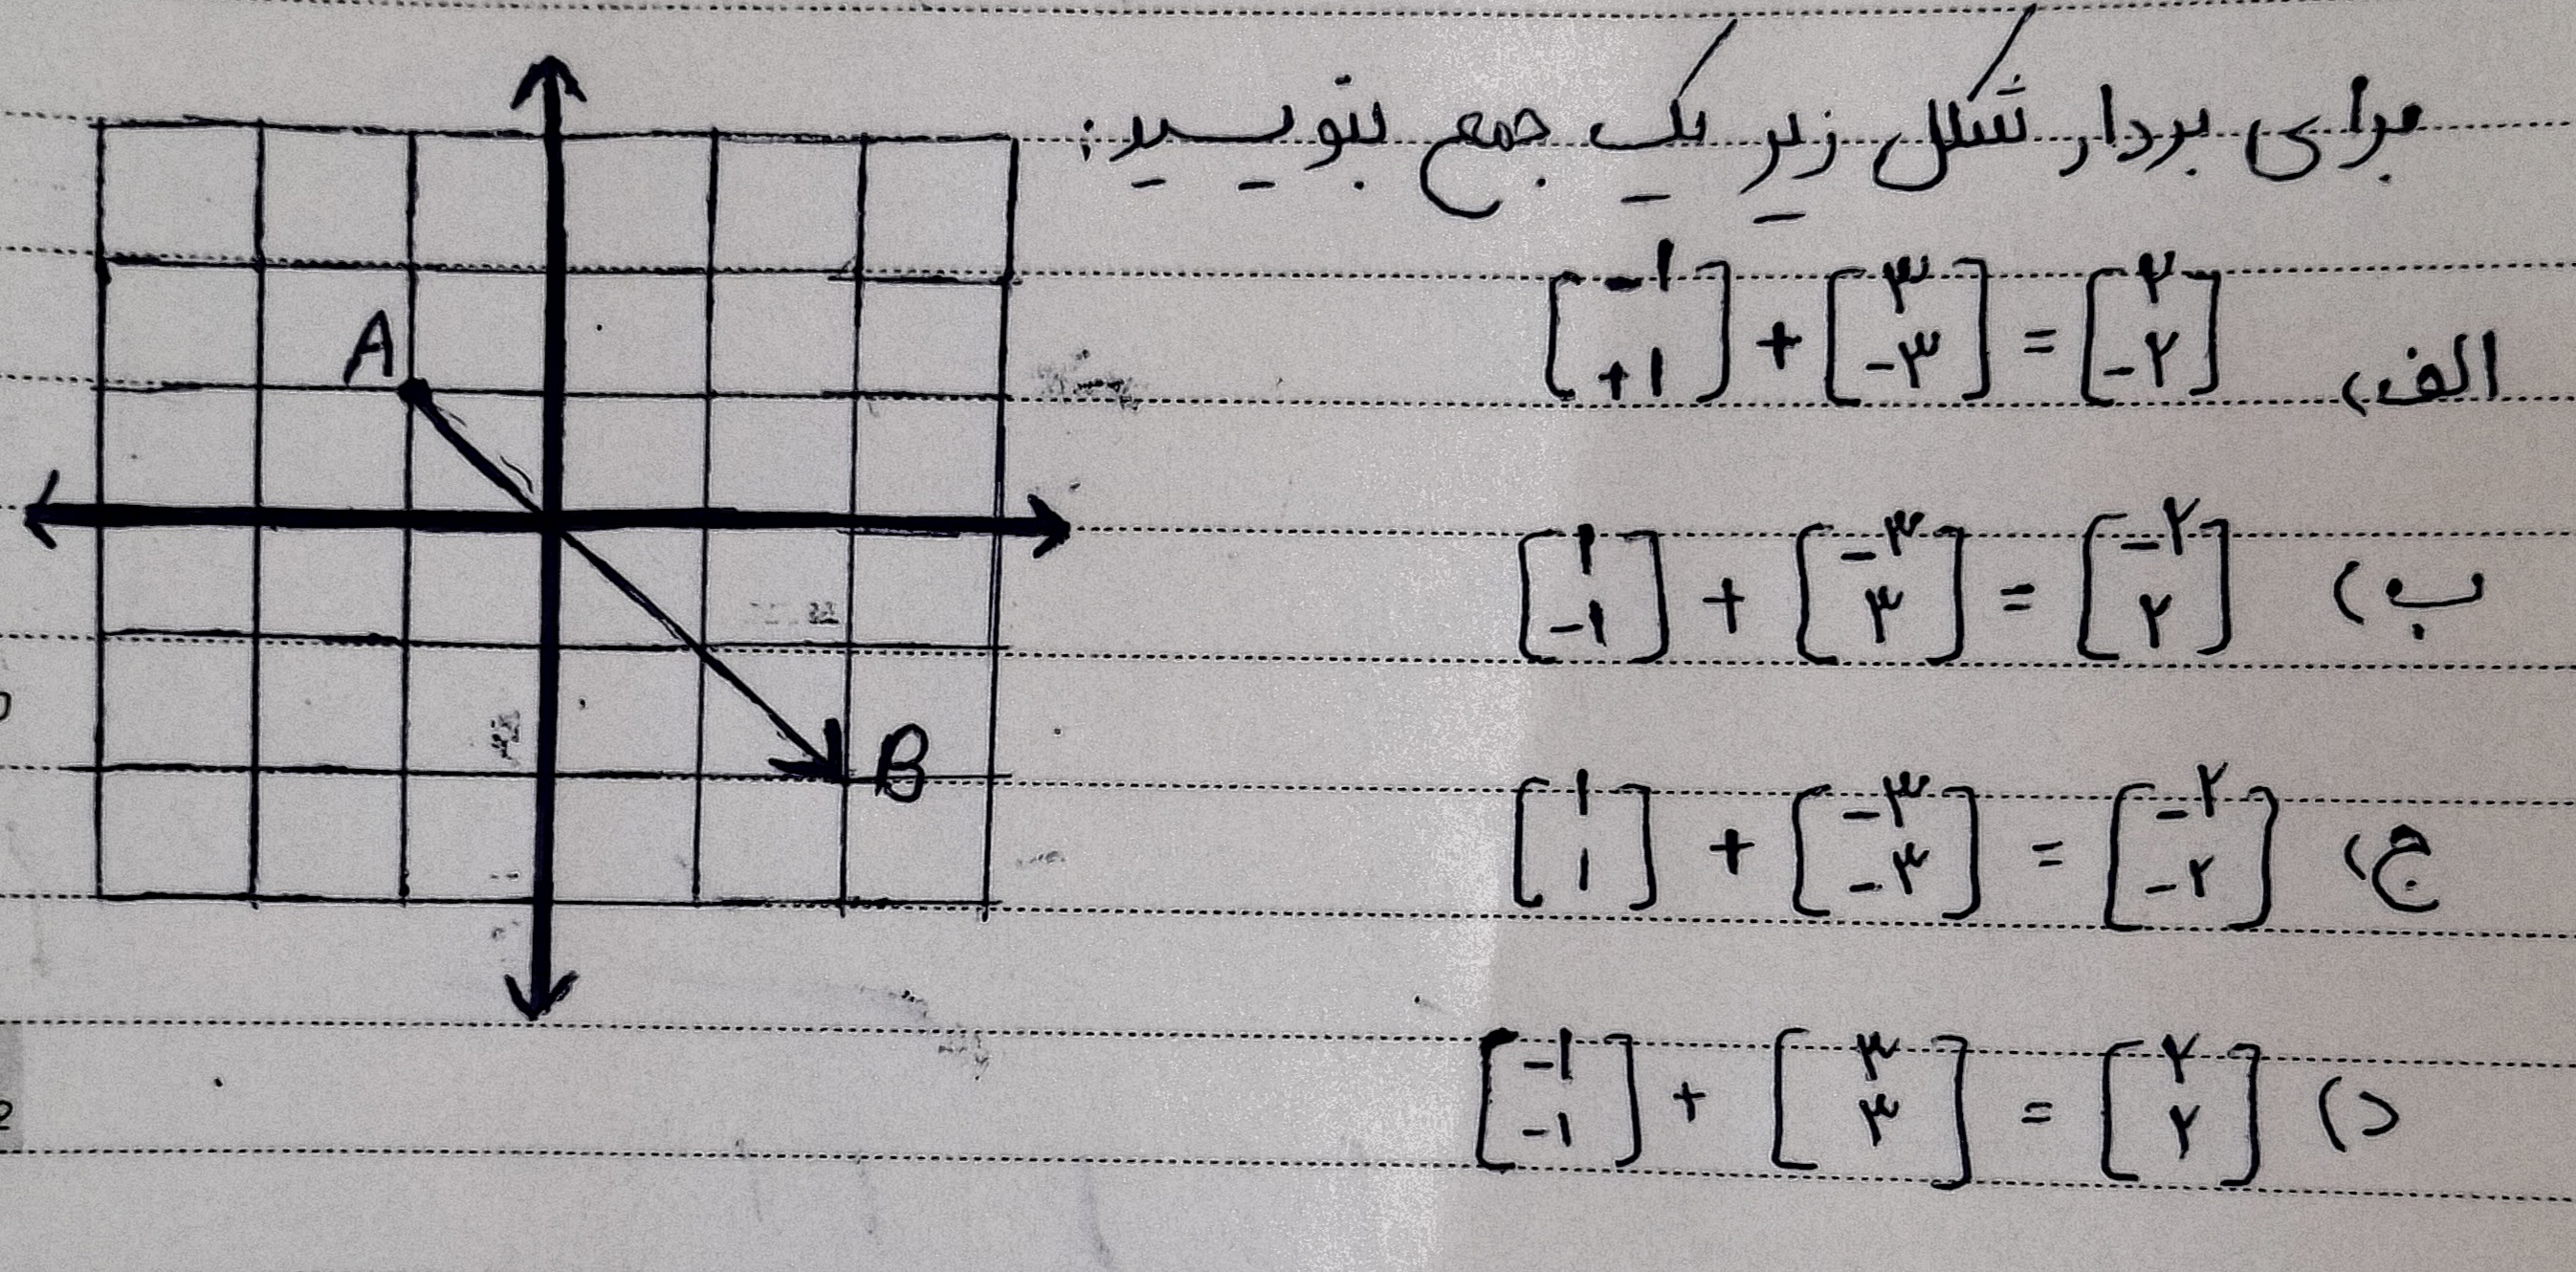 برای بردار شکل زیر یک جمع بنویسید:
الف) [-۱ +۱] + [۳ -۳] = [۲ -۲]
ب) [۱ -۱] + [-۳ ۳] = [-۲ ۲]
ج) [۱ ۱] + [-۳ -۳] = [-۲ -۲]
د) [-۱ -۱] + [۳ ۳] = [۲ ۲]
A
B